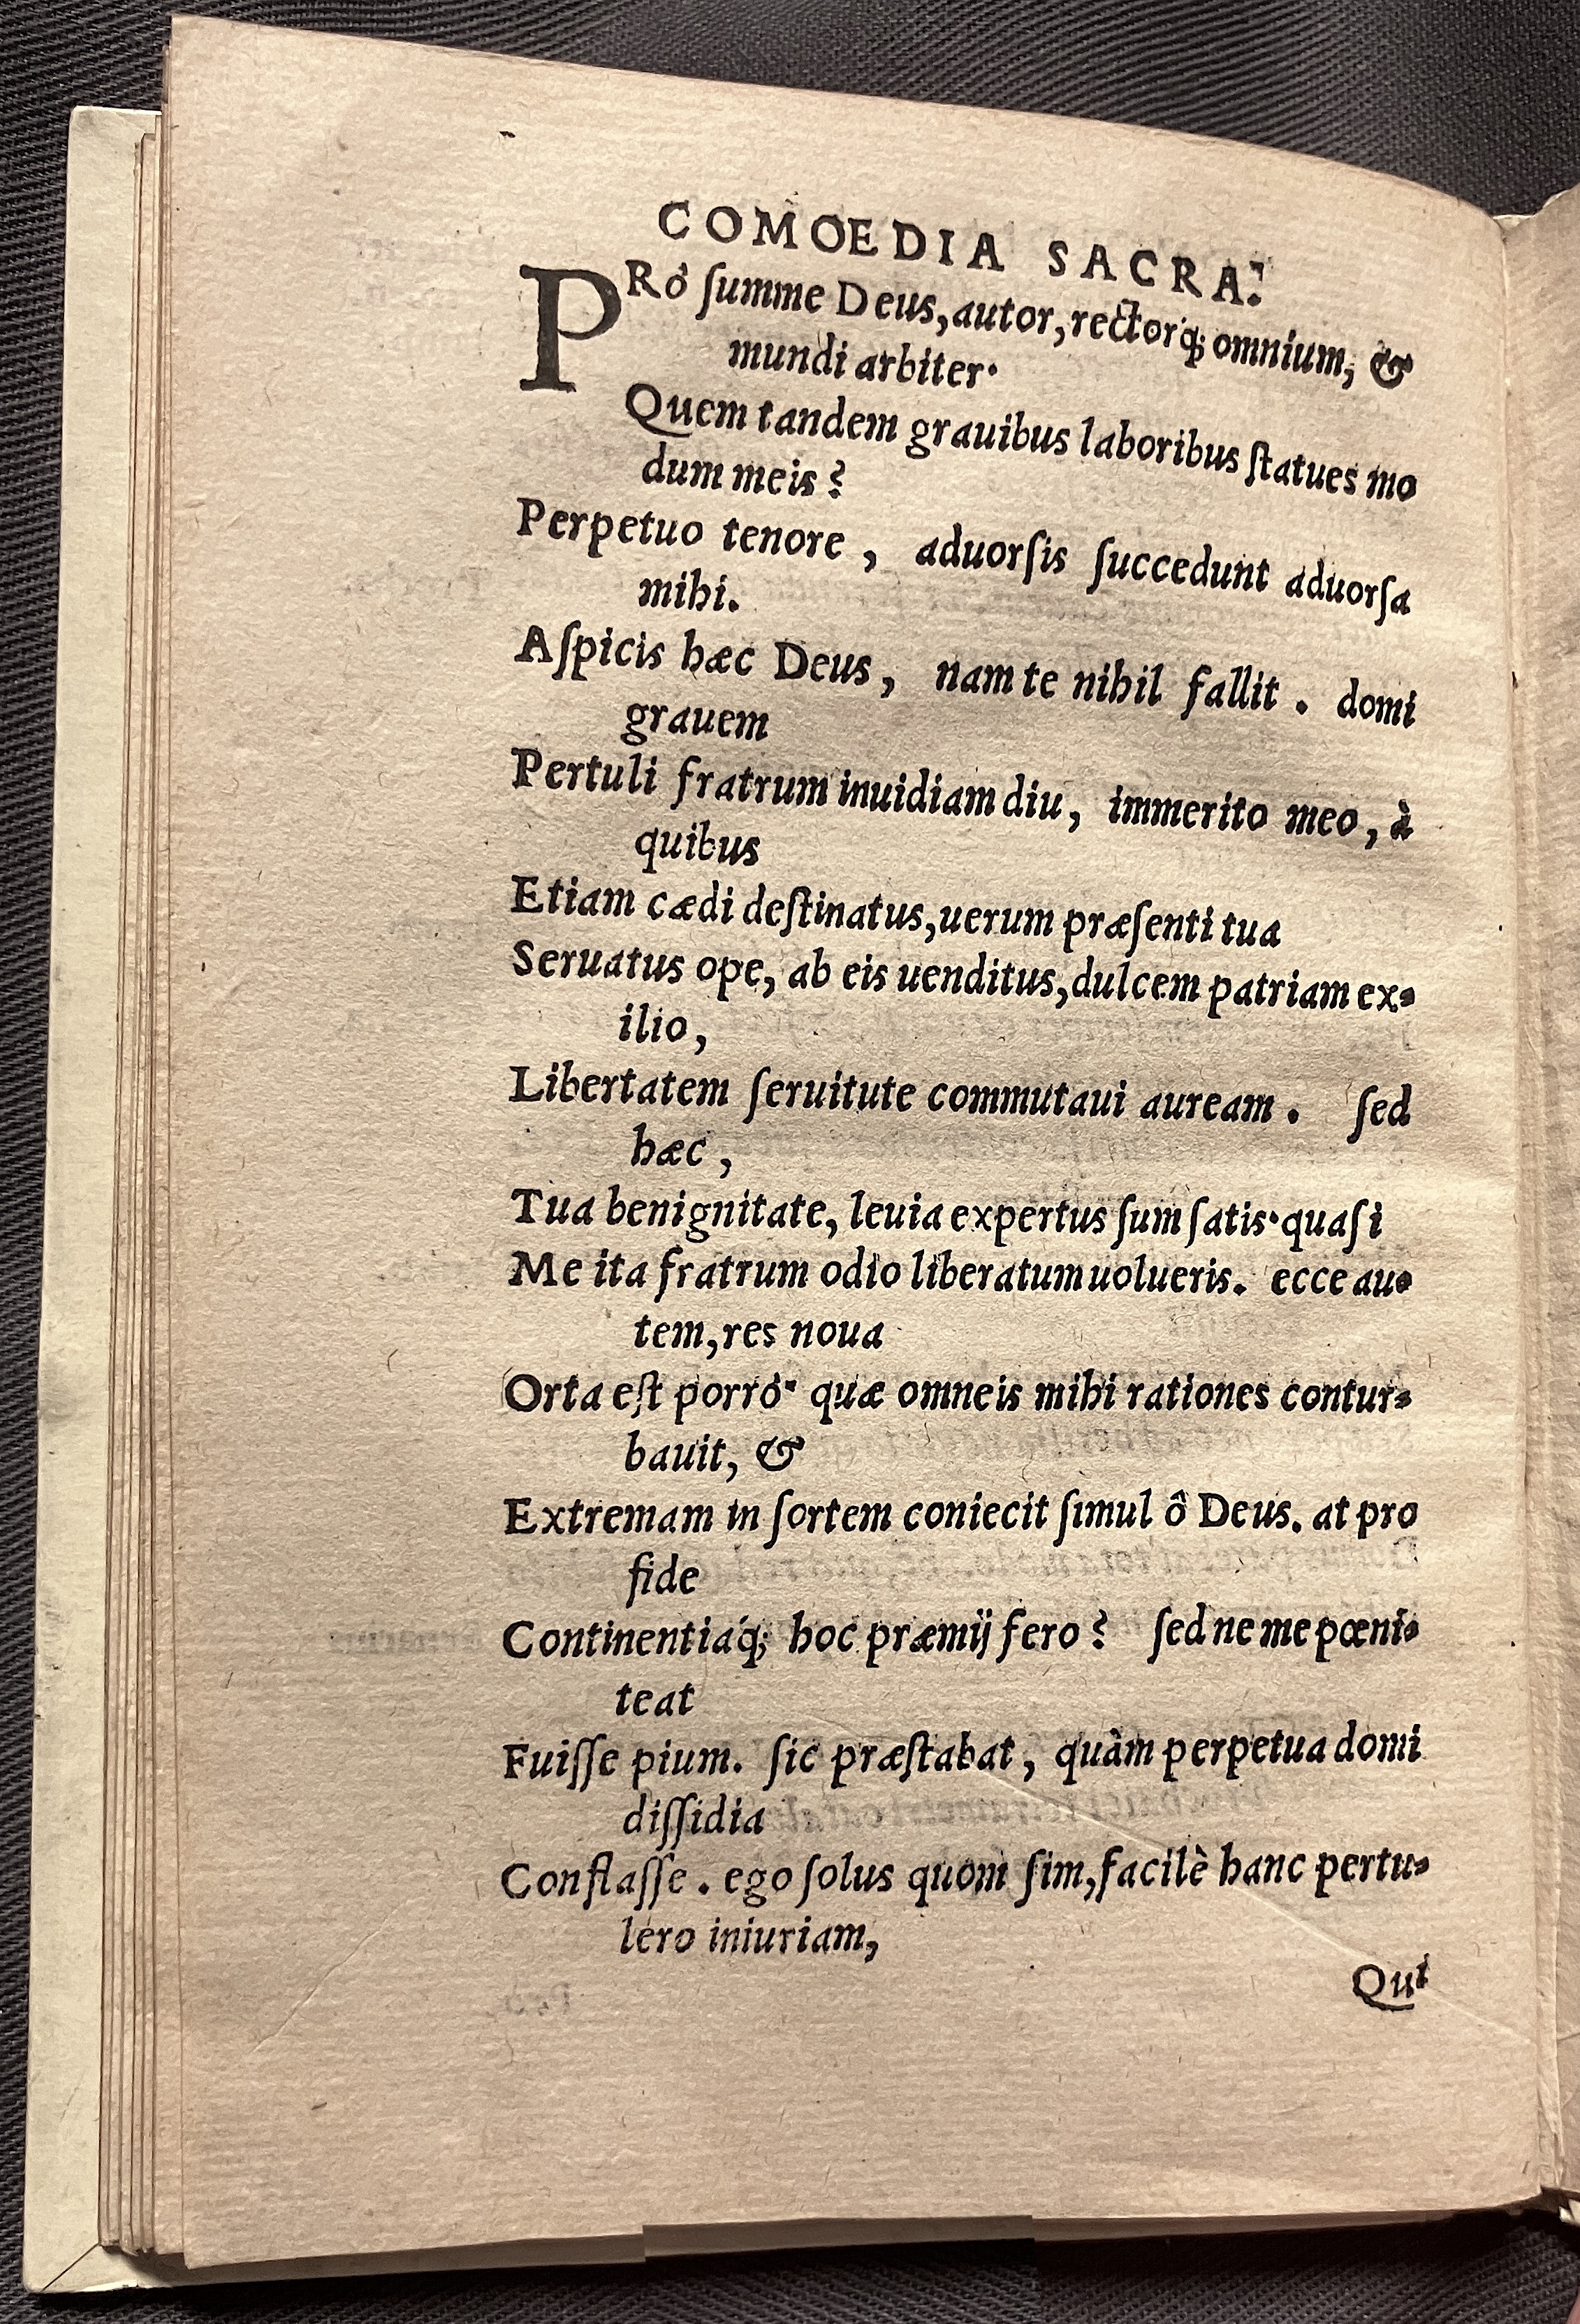 COMOEDIA SACRA.
PRó ſumme Deus, autor, rectorq; omnium, &
mundi arbiter.
Quem tandem grauibus laboribus ſtatues mo
dum meis?
Perpetuo tenore, aduorſis ſuccedunt aduorſa
mihi.
Aſpicis hæc Deus, nam te nihil fallit. domi
grauem
Pertuli fratrum inuidiam diu, immerito meo, à
quibus
Etiam cædi deſtinatus, uerum præſenti tua
Seruatus ope, ab eis uenditus, dulcem patriam ex-
ilio,
Libertatem ſeruitute commutaui auream. ſed
hæc,
Tua benignitate, leuia expertus ſum ſatis. quaſi
Me ita fratrum odio liberatum uolueris. ecce au-
tem, res noua
Orta eſt porró. quæ omneis mihi rationes contur-
bauit, &
Extremam in ſortem coniecit ſimul ô Deus. at pro
fide
Continentiaq́; hoc præmij fero? ſed ne me pœni-
teat
Fuiſſe pium. ſic præſtabat, quàm perpetua domi
diſſidia
Conflaſſe. ego ſolus quom ſim, facilè hanc pertu-
lero iniuriam,
Qui